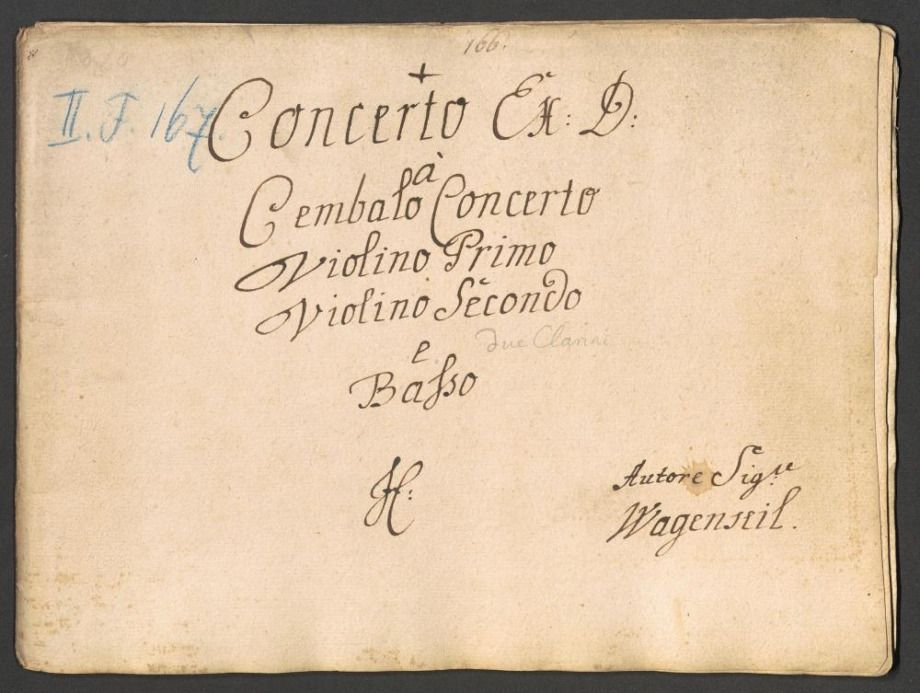 166.
II. J. 167.
Concerto Ex: D:
à
Cembalo Concerto
Violino Primo
Violino Secondo
due Clarini
e
Basso
H:
Autore Sig.re
Wagenseil.